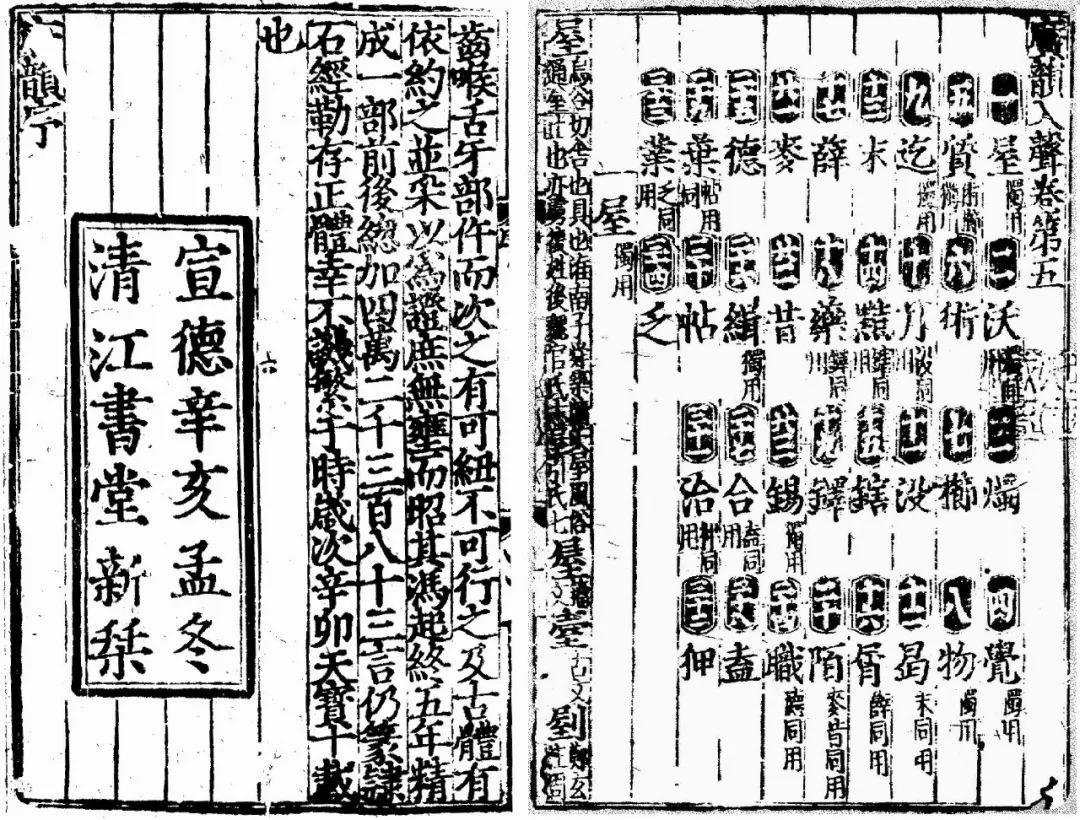 廣韻入聲卷第五
一屋獨用 二沃燭同用 三燭 四覺獨用
五質術櫛同用 六術 七櫛 八物獨用
九迄獨用 十月没同用 十一没 十二曷末同用
十三末 十四黠鎋同用 十五鎋 十六屑薛同用
十七薛 十八藥鐸同用 十九鐸 二十陌麥昔同用
廿一麥 廿二昔 廿三錫獨用 廿四職德同用
廿五德 廿六緝獨用 廿七合盍同用 廿八盍
廿九葉帖同用 三十帖 卅一洽狎同用 卅二狎
卅三業乏同用 卅四乏
一屋獨用
屋烏谷切舍也具也淮南子 風俗通屋止也亦虜複姓後魏官氏志 氏七 屋 古文 剭
齒喉舌牙部仵而次之有可紐不可行之及古體有
依約之並采以為證庶無壅而昭其馮起終五年精
成一部前後總加四萬二千三百八十三言仍篆隸
石經勒存正體幸不譏繁于時歲次辛卯天寶十載
也
宣德辛亥孟冬
清江書堂新栞
六
韻